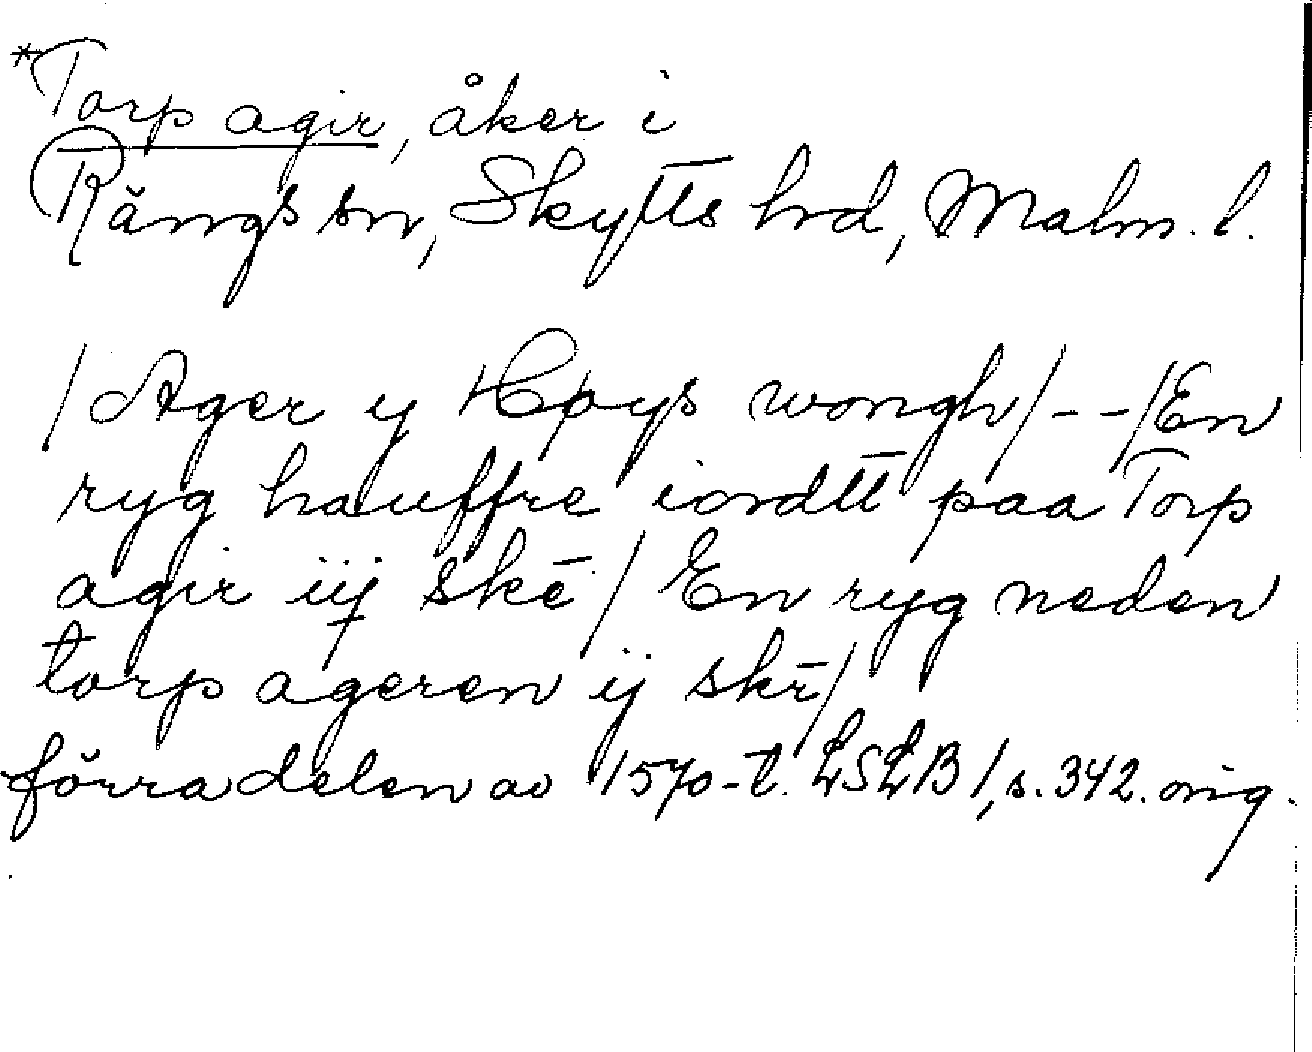 *Torp agir, åker i
Rängs sn, Skytts hrd, Malm. l.
/Ager y Høys wongh/--/En
ryg hauffre iordtt paa Torp
agir iij skē/ En ryg neden
torp ageren ij skē/
förra delen av 1570-t. LSLB 1, s. 342. orig.